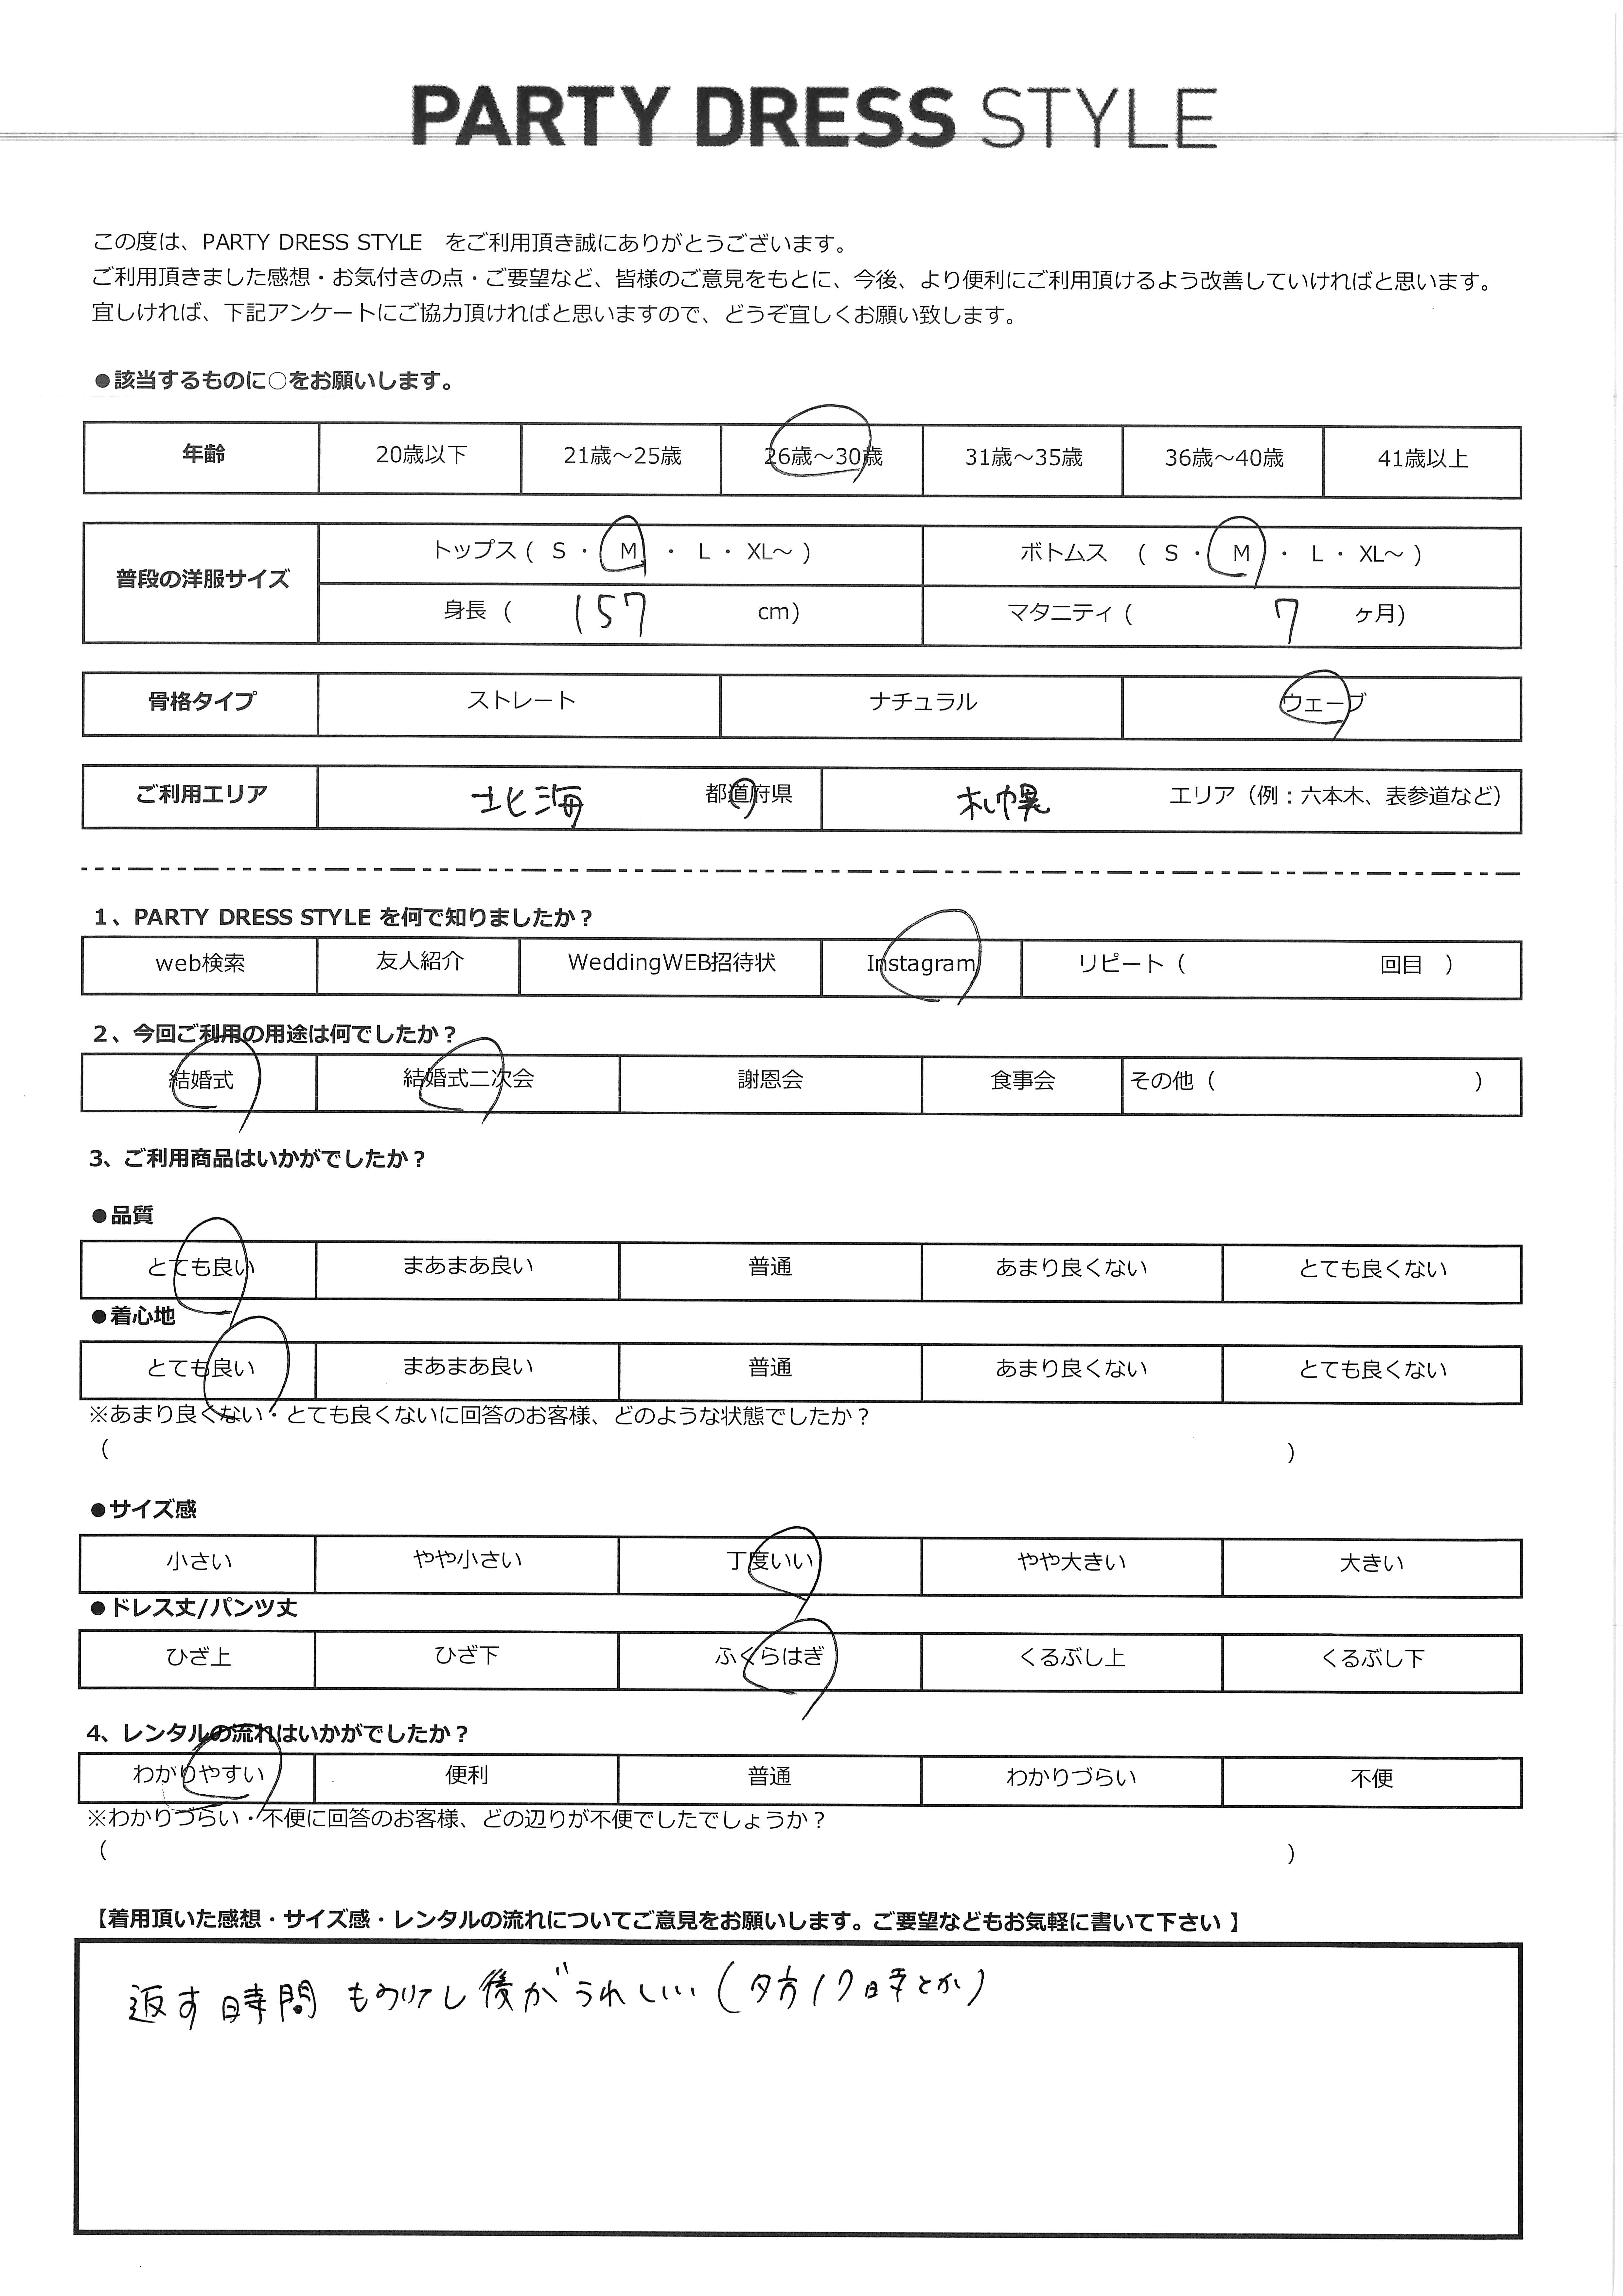 PARTY DRESS STYLE
この度は、PARTY DRESS STYLE をご利用頂き誠にありがとうございます。
ご利用頂きました感想・お気付きの点・ご要望など、皆様のご意見をもとに、今後、より便利にご利用頂けるよう改善していければと思います。
宜しければ、下記アンケートにご協力頂ければと思いますので、どうぞ宜しくお願い致します。
●該当するものに○をお願いします。
年齢 20歳以下 21歳～25歳 26歳～30歳 31歳～35歳 36歳～40歳 41歳以上
普段の洋服サイズ トップス ( S ・ M ・ L ・ XL～ ) ボトムス ( S ・ M ・ L ・ XL～ )
身長 ( 157 cm) マタニティ ( 7 ヶ月)
骨格タイプ ストレート ナチュラル ウェーブ
ご利用エリア 北海 都道府県 札幌 エリア（例：六本木、表参道など）
1、PARTY DRESS STYLE を何で知りましたか？
web検索 友人紹介 WeddingWEB招待状 Instagram リピート（ 回目 ）
2、今回ご利用の用途は何でしたか？
結婚式 結婚式二次会 謝恩会 食事会 その他（ ）
3、ご利用商品はいかがでしたか？
●品質
とても良い まあまあ良い 普通 あまり良くない とても良くない
●着心地
とても良い まあまあ良い 普通 あまり良くない とても良くない
※あまり良くない・とても良くないに回答のお客様、どのような状態でしたか？
（ ）
●サイズ感
小さい やや小さい 丁度いい やや大きい 大きい
●ドレス丈/パンツ丈
ひざ上 ひざ下 ふくらはぎ くるぶし上 くるぶし下
4、レンタルの流れはいかがでしたか？
わかりやすい 便利 普通 わかりづらい 不便
※わかりづらい・不便に回答のお客様、どの辺りが不便でしたでしょうか？
（ ）
【着用頂いた感想・サイズ感・レンタルの流れについてご意見をお願いします。ご要望などもお気軽に書いて下さい 】
返す時間 もう少し後がうれしい (夕方17時とか)